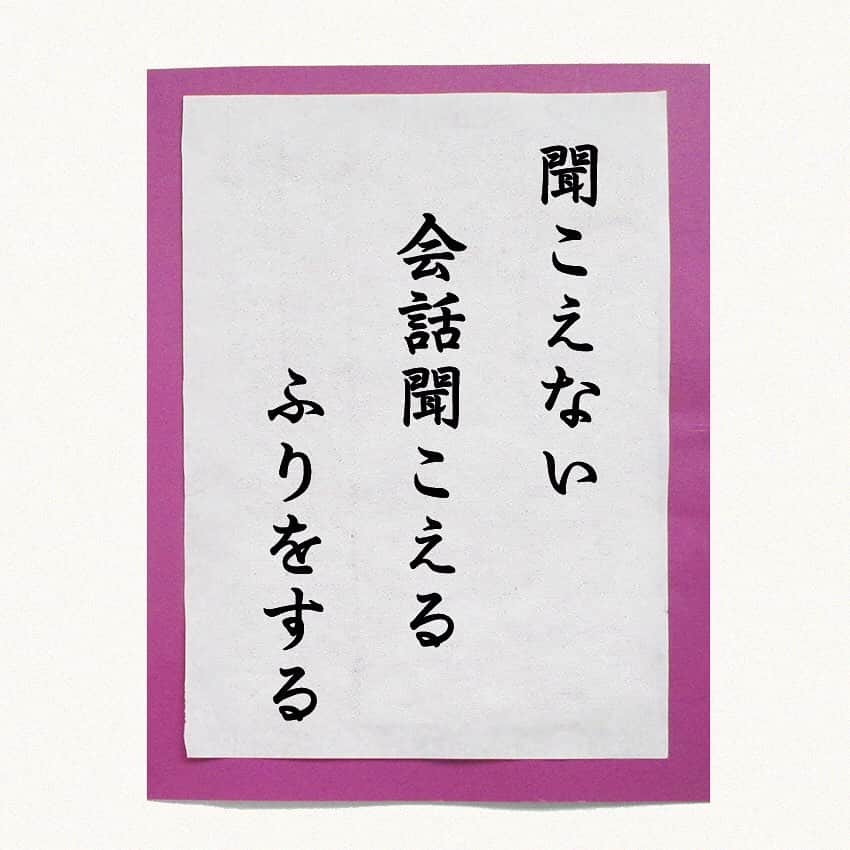 聞こえない
会話聞こえる
ふりをする